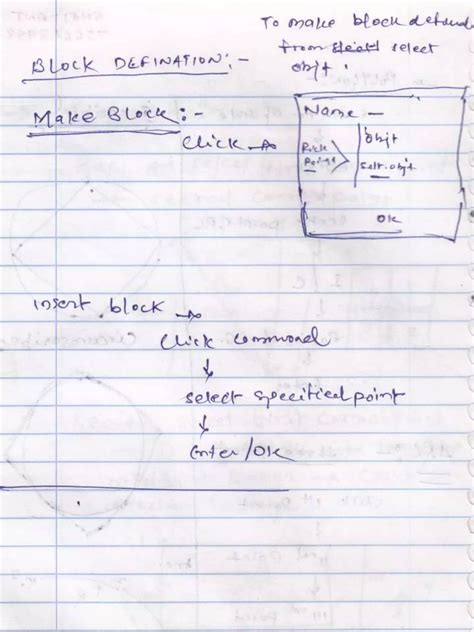 To make block defends
from select
objt.
BLOCK DEFINATION:-
MAKE BLOCK:-
Click →
Name —
Objt
Pick
Point
Selt. objt
OK
insert block →
Click command
↓
select specified point
↓
Enter/OK